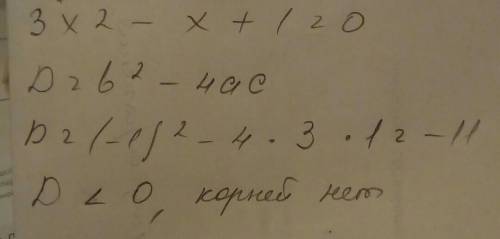 3x2 - x + 1 = 0
D = b² - 4ac
D = (-1)² - 4 · 3 · 1 = -11
D < 0, корней нет